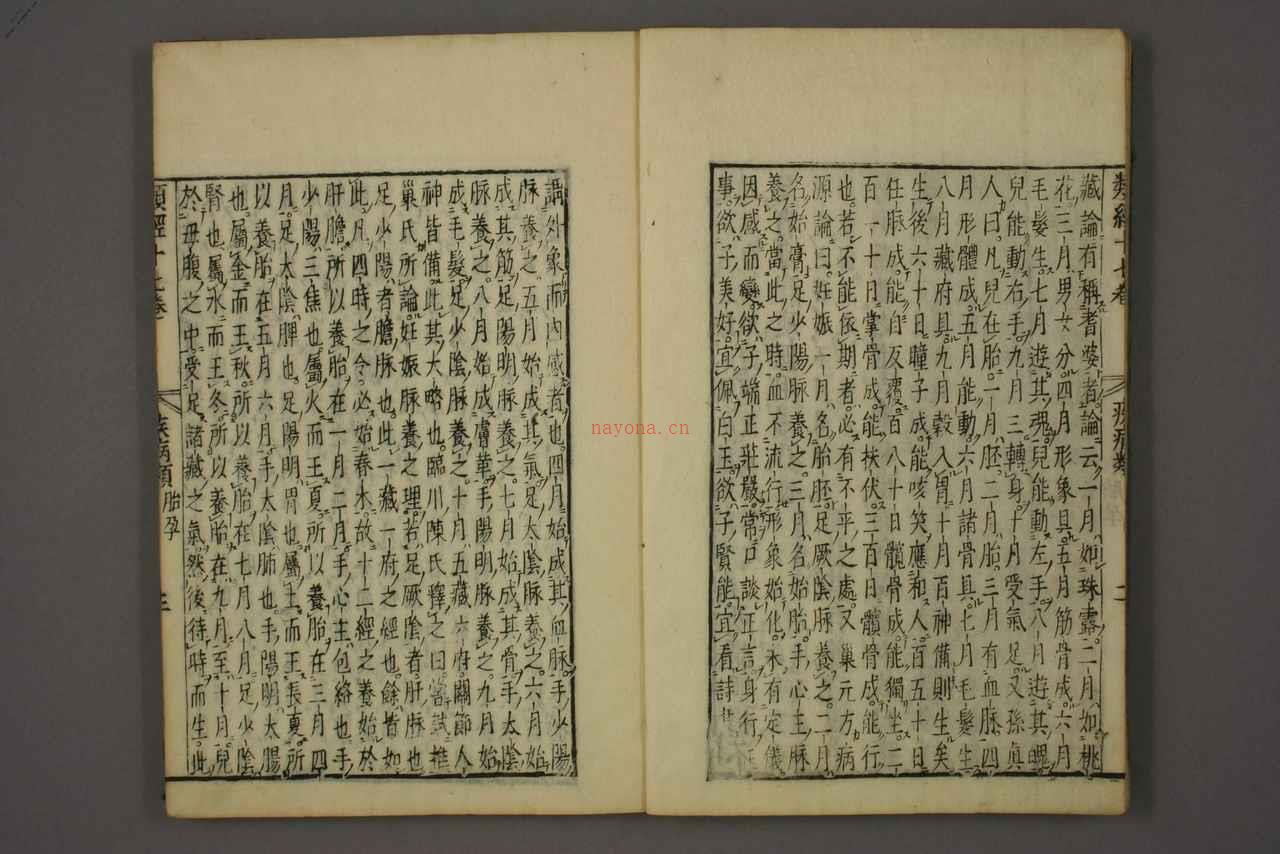 類經十七卷
疾病類
二
藏論有稱耆婆者論云一月如珠露二月如桃
花三月男女分四月形象具五月筋骨成六月
毛髮生七月遊其魂兒能動左手八月遊其魄
兒能動右手九月三轉身十月受氣足又孫真
人曰凡兒在胎一月胚二月胎三月有血脉四
月形體成五月能動六月諸骨具七月毛髮生
八月藏府具九月穀入胃十月百神備則生矣
生後六十日瞳子成能咳笑應和人百五十日
任脉成能自反覆百八十日髖骨成能獨坐二
百一十日掌骨成能扶伏三百日髕骨成能行
也若不能依期者必有不平之處又巢元方病
源論曰妊娠一月名胎胚足厥陰脉養之二月
名始膏足少陽脉養之三月名始胎手心主脉
養之當此之時血不流行形象始化未有定儀
因感而變欲子端正莊嚴常口談正言身行正
事欲子美好宜佩白玉欲子賢能宜看詩書
謂外象而內感者也四月始成其血脉手少陽
脉養之五月始成其氣足太陰脉養之六月始
成其筋足陽明脉養之七月始成其骨手太陰
脉養之八月始成膚革手陽明脉養之九月始
成毛髮足少陰脉養之十月五藏六府關節人
神皆備此其大略也臨川陳氏釋之曰嘗試推
巢氏所論妊娠脉養之理若足厥陰者肝脉也
足少陽者膽脉也此一藏一府之經也餘皆如
此凡四時之令必始春木故十二經之養始於
肝膽所以養胎在一月二月手心主包絡也手
少陽三焦也屬火而王夏所以養胎在三月四
月足太陰脾也足陽明胃也屬土而王長夏所
以養胎在五月六月手太陰肺也手陽明太腸
也屬金而王秋所以養胎在七月八月足少陰
腎也屬水而王冬所以養胎在九月至十月兒
於母腹之中受足諸藏之氣然後待時而生此
類經十七卷
疾病類
胎孕
三
nayona.cn